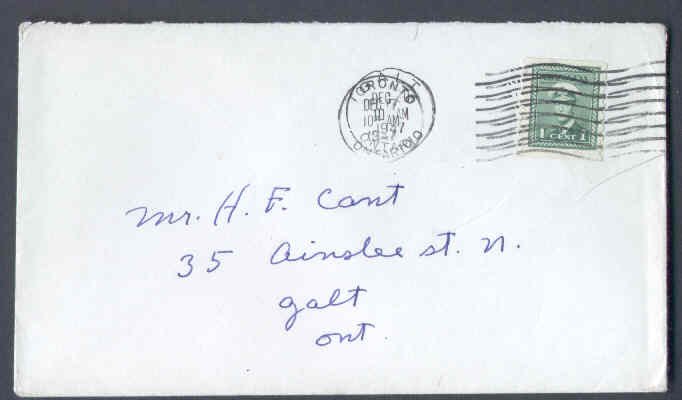 TORONTO
DEC
10 AM
1947
ONTARIO
1 CENT 1
Mr. H. F. Cant
35 Ainslee st. N.
galt
ont.